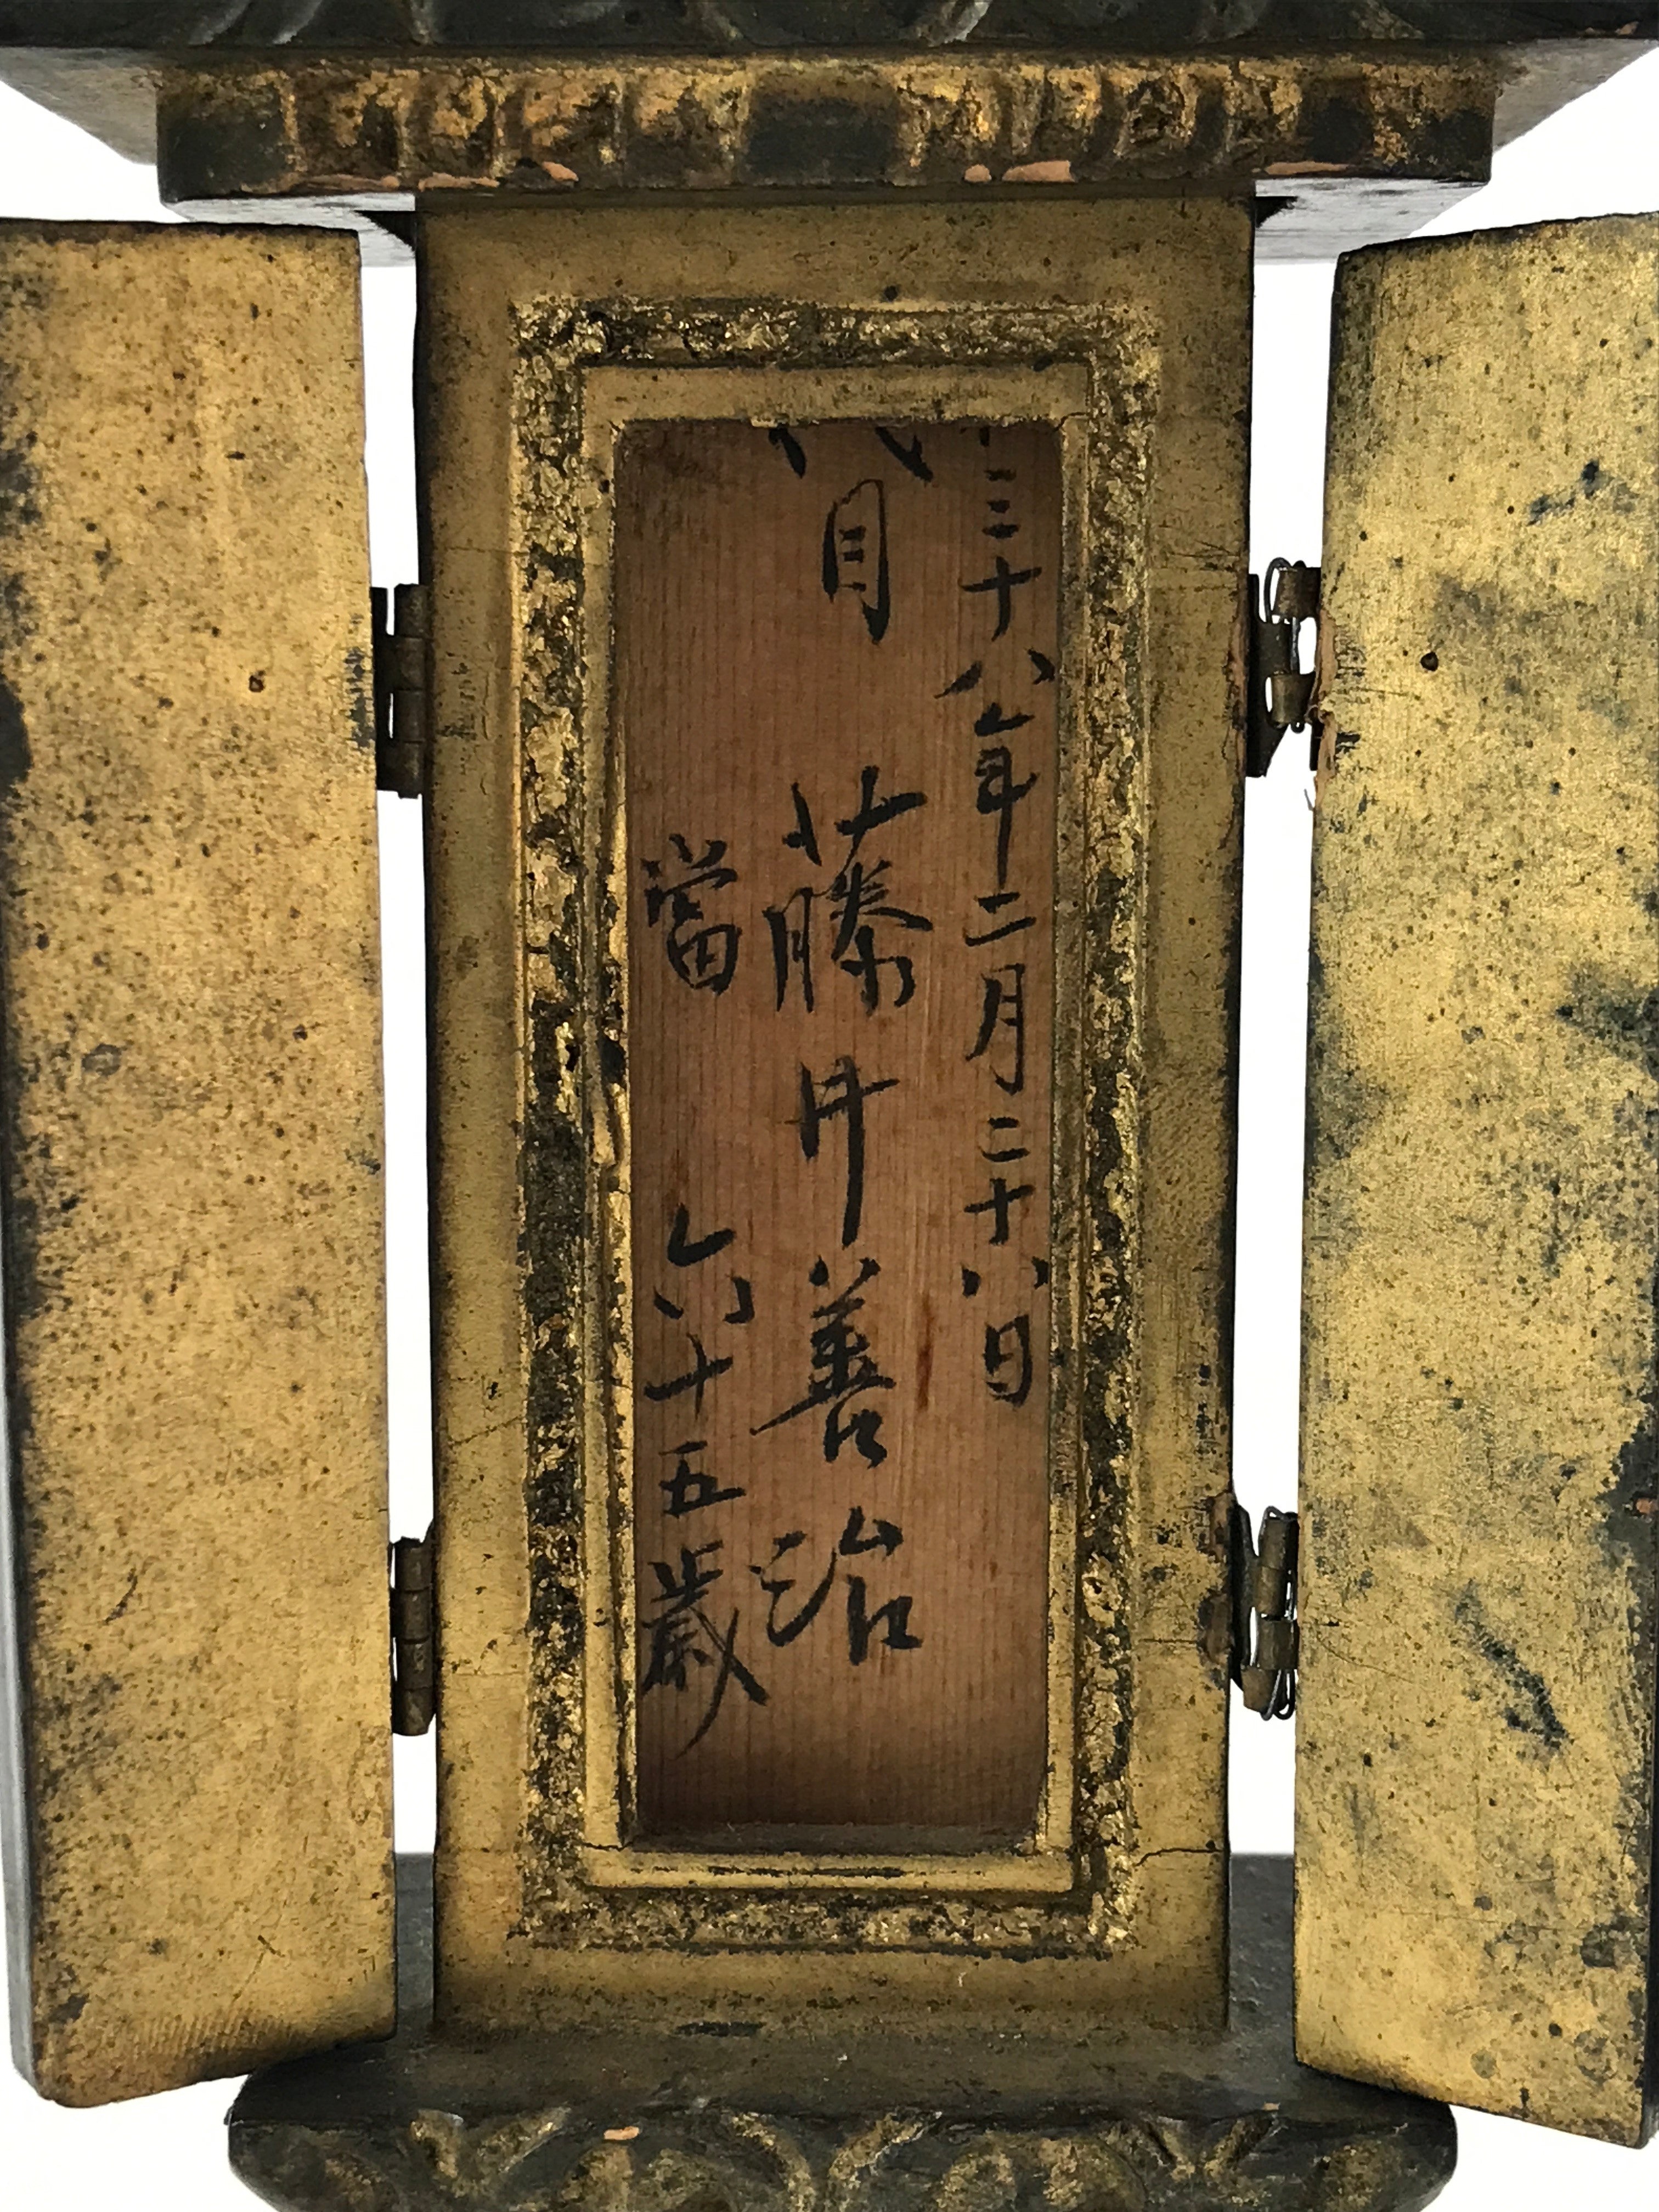 三十八年二月二十八日
代目 藤井善治
當 六十五歲